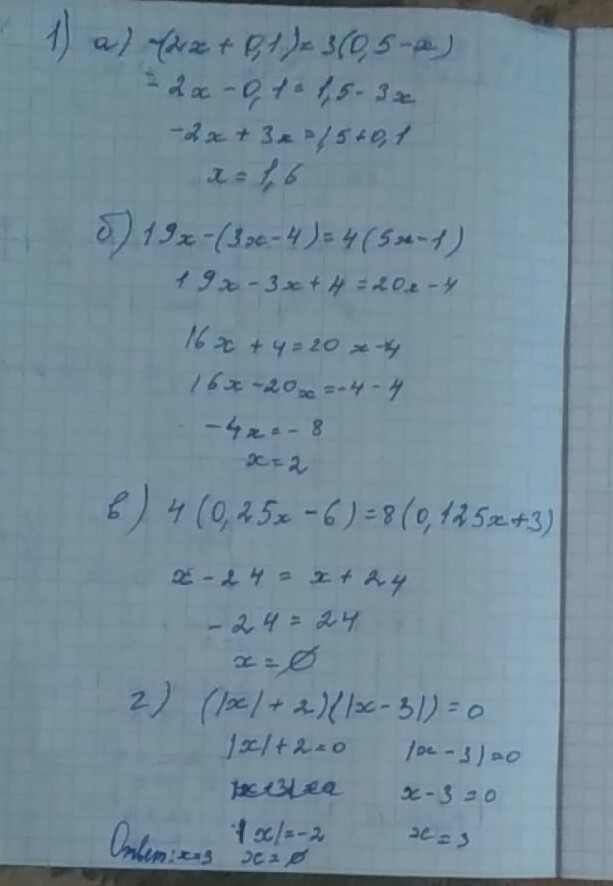 1) а) -(2x + 0,1) = 3(0,5 - x)
- 2x - 0,1 = 1,5 - 3x
-2x + 3x = 1,5 + 0,1
x = 1,6
б) 19x - (3x - 4) = 4(5x - 1)
19x - 3x + 4 = 20x - 4
16x + 4 = 20x - 4
16x - 20x = -4 - 4
-4x = - 8
x = 2
в) 4(0,25x - 6) = 8(0,125x + 3)
x - 24 = x + 24
- 24 = 24
x = ∅
г) (|x| + 2)(|x - 3|) = 0
|x| + 2 = 0 |x - 3| = 0
x - 3 = 0
|x| = -2 x = 3
Ответ: x = 3 x = ∅